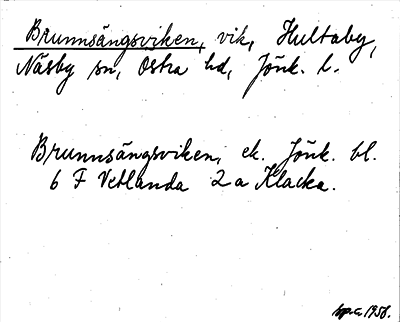 Brunnsängsviken, vik, Hultaby,
Näsby sn, Östra hd, Jönk. l.
Brunnsängsviken, ek. Jönk. bl.
6 F Vetlanda 2a Klacka.
1958.